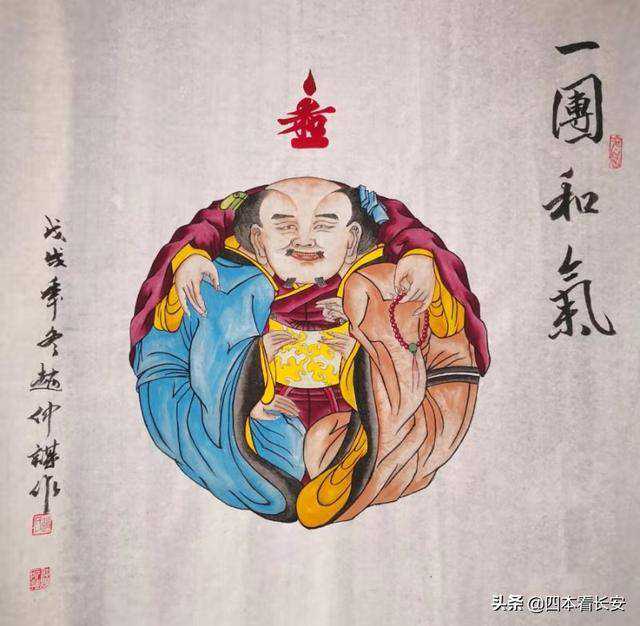 一團和氣
戊戌季冬趙仲謀作
头条 @四本看长安